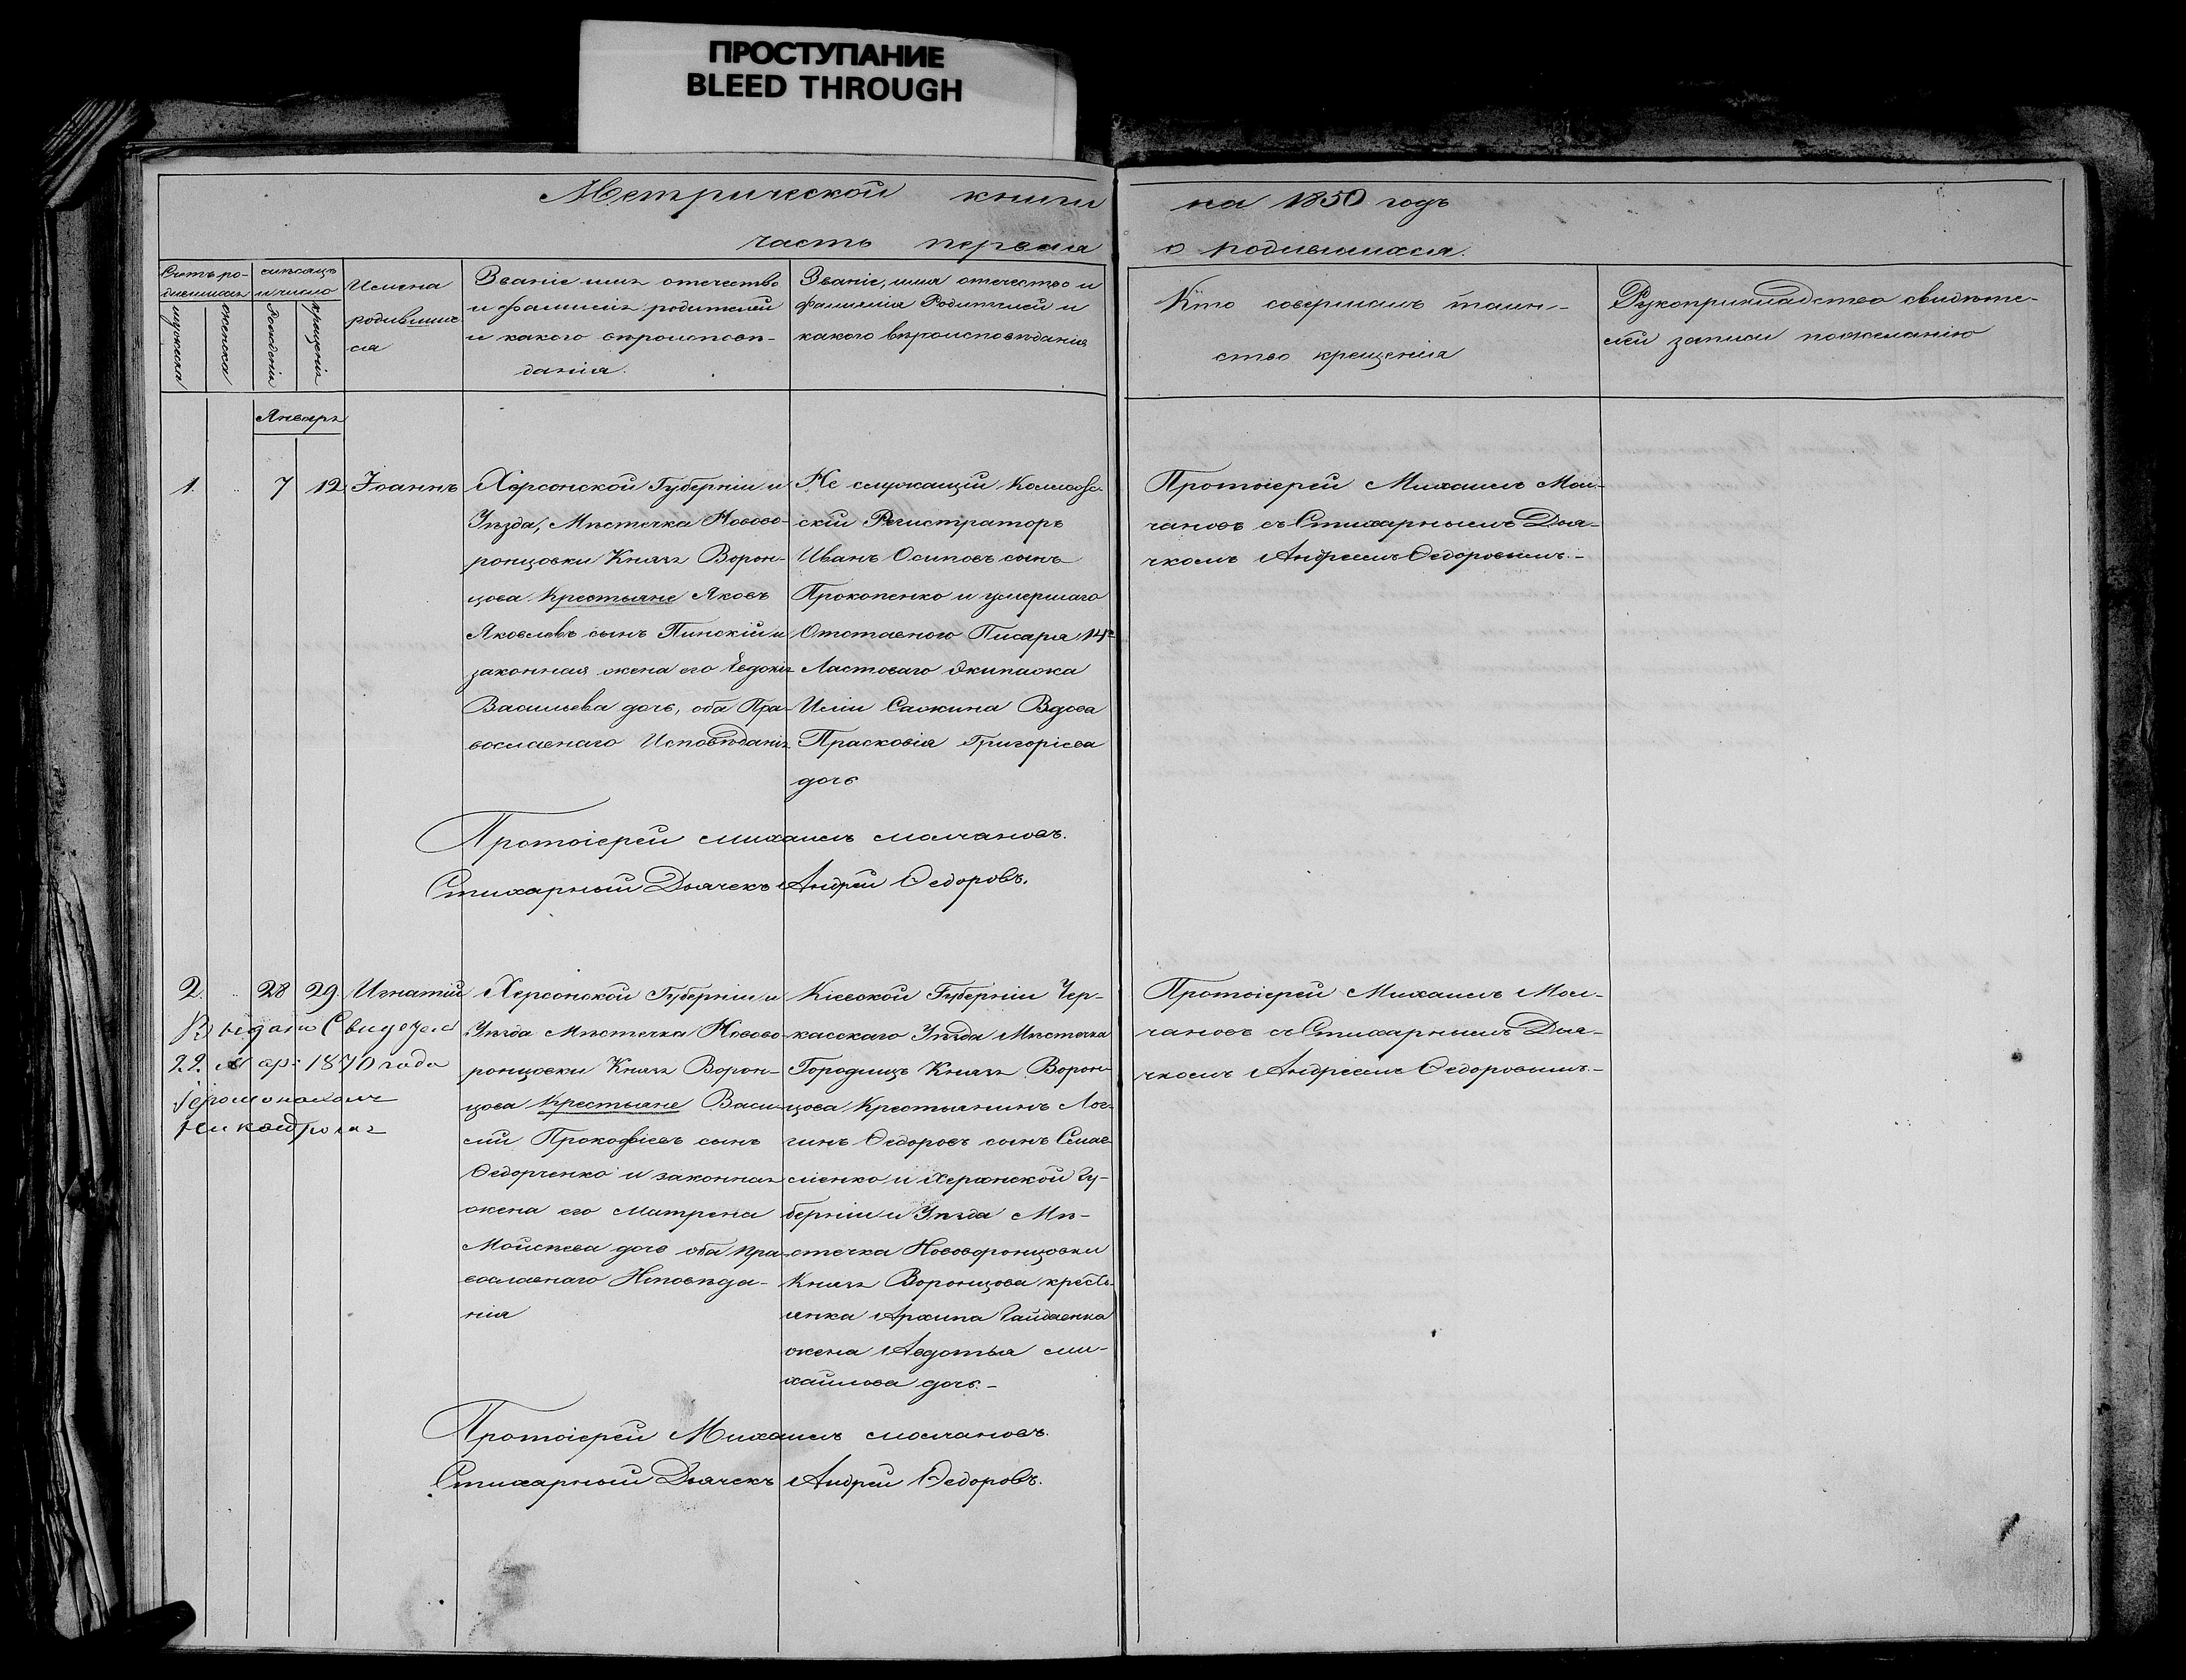 ПРОСТУПАНИЕ
BLEED THROUGH
Метрической книги на 1850 годъ
часть первая о родившихся.
Счетъ ро-
дившихся
мужеска
женска
мѣсяцъ
и число
Рожденія
крещенія
Имена
родивших
ся
Званіе имя отечество
и фамилія родителей
и какого вѣроисповѣ-
данія.
Званіе, имя отечество и
фамилія Родителей и
какого вѣроисповѣданія
Кто совершалъ таин-
ство крещенія
Рукоприкладство свидѣте-
лей записи пожеланію
Январь
1. 7 12 Іоаннъ
Херсонской Губерніи и
Уѣзда, Мѣстечка Новово-
ронцовки Князя Ворон-
цова Крестьяне Яковъ
Яковлевъ сынъ Пинскій и
законная жена его Евдокія
Васильева дочь, оба Пра-
вославнаго Исповѣданія
Не служащій Коллежс-
скій Регистраторъ
Иванъ Осиповъ сынъ
Прокопенко и умершаго
Отставного Писаря 14го
Ластоваго Экипажа
Иліи Сажина Вдова
Прасковія Григоріева
дочь
Протоіерей Михаилъ Мол-
чановъ съ Стихарнымъ Дья-
чкомъ Андреемъ Ѳедоровымъ.-
Протоіерей Михаилъ Молчановъ.
Стихарный Дьячекъ Андрей Ѳедоровъ.
2. 28 29 Игнатій
Выдано Свидетел
22 Мар: 1870 года
Іеромонахомъ
Херсонской Губерніи и
Уѣзда Мѣстечка Новово-
ронцовки Князя Ворон-
цова Крестьяне Васи-
лій Прокофіевъ сынъ
Ѳедорченко и законная
жена его Матрена
Моисѣева дочь оба пра-
вославнаго Исповѣда-
нія
Кіевской Губерніи Чер-
касскаго Уѣзда Мѣстечка
Городищъ Князя Ворон-
цова Крестьянинъ Лог-
гинъ Ѳедоровъ сынъ
и Херсонской Гу-
берніи и Уѣзда Мѣ-
стечка Нововоронцовки
Князя Воронцова кресть-
янка Архипа Гайдаенка
жена Авдотья Ми-
хайлова дочь.-
Протоіерей Михаилъ Мол-
чановъ съ Стихарнымъ Дья-
чкомъ Андреемъ Ѳедоровымъ.-
Протоіерей Михаилъ Молчановъ.
Стихарный Дьячекъ Андрей Ѳедоровъ.